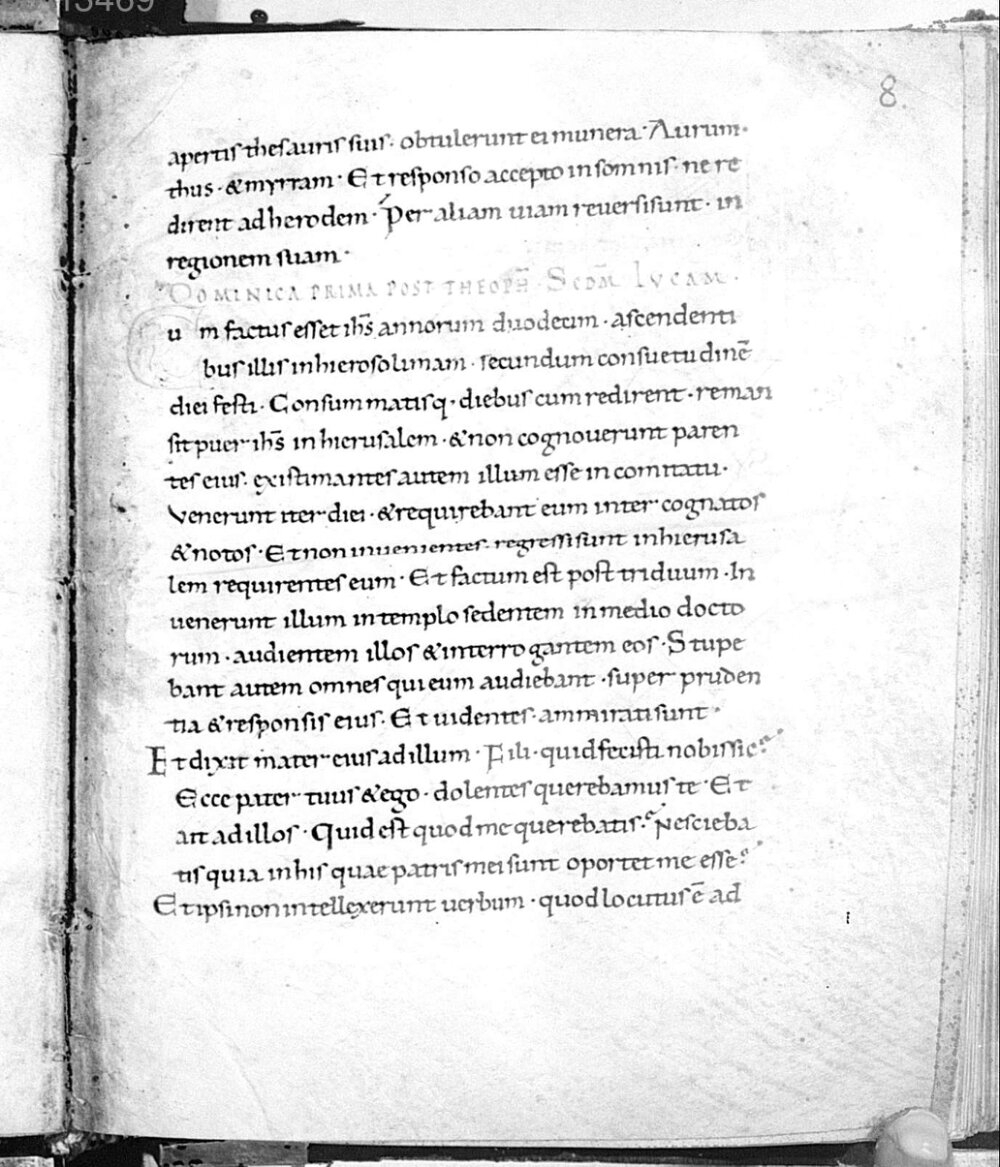 13469
8.
apertis thesauris suis · obtulerunt ei munera · Aurum ·
thus · & myrram · Et responso accepto in somnis · ne re
dirent ad herodem · Per aliam uiam reuersi sunt · in
regionem suam ·
DOMINICA PRIMA POST THEOPH̄ · SCDM̄ LVCAM ·
Cu m factus esset ih̄s annorum duodecim · ascendenti
bus illis in hierosolimam · secundum consuetudinē
diei festi · Consummatisq · diebus cum redirent · reman
sit puer ih̄s in hierusalem · & non cognouerunt paren
tes eius · existimantes autem illum esse in comitatu ·
Venerunt iter diei · & requirebant eum inter cognatos
& notos · Et non inuenientes · regressi sunt in hierusa
lem requirentes eum · Et factum est post triduum · In
uenerunt illum in templo sedentem in medio docto
rum · audientem illos & interrogantem eos · Stupe
bant autem omnes qui eum audiebant · super pruden
tia & responsis eius · Et uidentes · ammirati sunt ·
Et dixit mater eius ad illum · Fili · quid fecisti nobis sic?
Ecce pater tuus & ego · dolentes querebamus te · Et
ait ad illos · Quid est quod me querebatis? Nescieba
tis quia in his quae patris mei sunt oportet me esse?
Et ipsi non intellexerunt uerbum · quod locutus ē ad